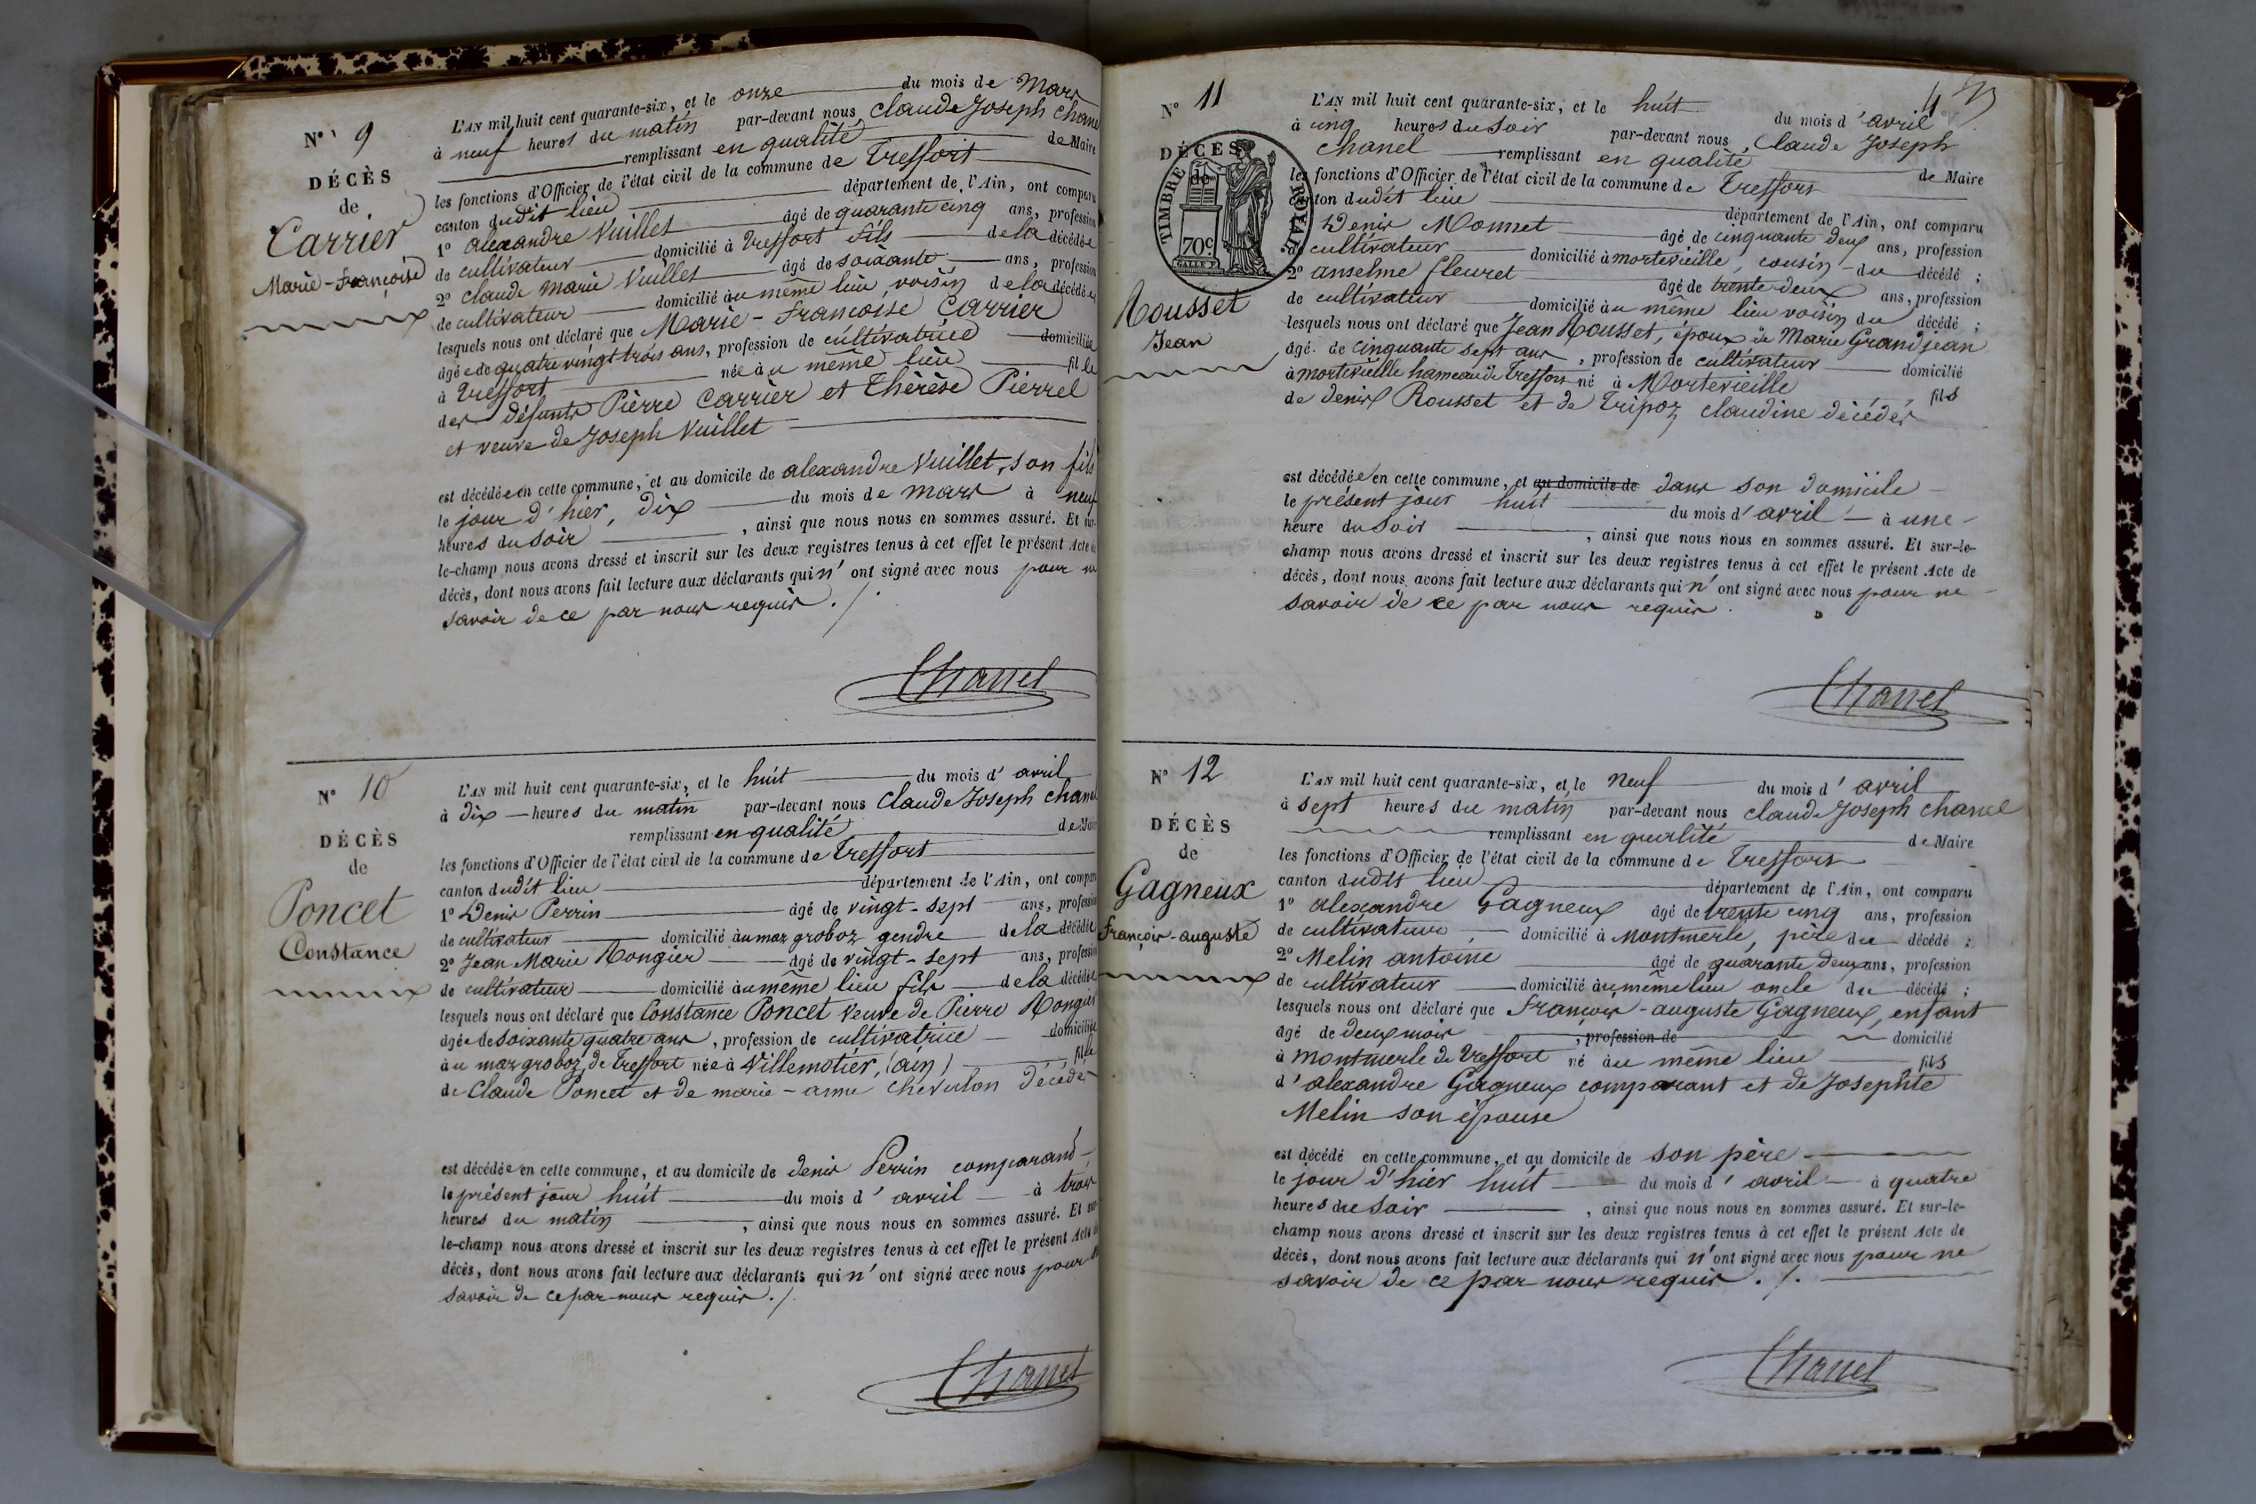 N° 9
DÉCÈS
de
Carrier
Marie-Françoise
L'AN mil huit cent quarante-six, et le onze du mois de Mars
à neuf heures du matin par-devant nous, Claude Joseph Chanel
remplissant en qualité de Maire
les fonctions d'Officier de l'état civil de la commune de Treffort
canton dudit lieu département de l'Ain, ont comparu
1° alexandre Vuillet âgé de quarante cinq ans, profession
de cultivateur domicilié à Treffort fils de la décédée
2° Claude Marie Vuillet âgé de soixante ans, profession
de cultivateur domicilié au même lieu voisin de la décédée
lesquels nous ont déclaré que Marie-Françoise Carrier
âgée de quatre vingt trois ans, profession de cultivatrice domiciliée
à Treffort née au même lieu fille
des défunts Pierre Carrier et Thérèse Pierrel
et veuve de Joseph Vuillet
est décédée en cette commune, et au domicile de alexandre Vuillet, son fils
le jour d'hier, dix du mois de mars à neuf
heures du soir, ainsi que nous nous en sommes assuré. Et sur-
le-champ nous avons dressé et inscrit sur les deux registres tenus à cet effet le présent Acte de
décès, dont nous avons fait lecture aux déclarants qui n'ont signé avec nous pour ne
savoir de ce par nous requis ./.
Chanel
N° 10
DÉCÈS
de
Poncet
Constance
L'AN mil huit cent quarante-six, et le huit du mois d'avril
à dix heures du matin par-devant nous Claude Joseph Chanel
remplissant en qualité de Maire
les fonctions d'Officier de l'état civil de la commune de Treffort
canton dudit lieu département de l'Ain, ont comparu
1° Denis Perrin âgé de vingt-sept ans, profession
de cultivateur domicilié au maz groboz gendre de la décédée
2° Jean Marie Rongier âgé de vingt-sept ans, profession
de cultivateur domicilié au même lieu fils de la décédée
lesquels nous ont déclaré que Constance Poncet veuve de Pierre Rongier
âgée de soixante quatre ans, profession de cultivatrice domiciliée
au maz groboz, de Treffort née à Villemotier, (ain) fille
de Claude Poncet et de marie-anne Chevelon décédés
est décédée en cette commune, et au domicile de denis Perrin comparant
le présent jour huit du mois d'avril à trois
heures du matin, ainsi que nous nous en sommes assuré. Et sur-
le-champ nous avons dressé et inscrit sur les deux registres tenus à cet effet le présent Acte de
décès, dont nous avons fait lecture aux déclarants qui n'ont signé avec nous pour ne
savoir de ce par nous requis ./.
Chanel
N° 11
DÉCÈS
de
TIMBRE ROYAL
70c
Rousset
Jean
L'AN mil huit cent quarante-six, et le huit du mois d'avril
à cinq heures du soir par-devant nous, Claude Joseph
Chanel remplissant en qualité de Maire
les fonctions d'Officier de l'état civil de la commune de Treffort
canton dudit lieu département de l'Ain, ont comparu
Denis Monnet âgé de cinquante deux ans, profession
de cultivateur domicilié à mortevieille, cousin du décédé ;
2° anselme fleuret âgé de trente deux ans, profession
de cultivateur domicilié au même lieu voisin du décédé ;
lesquels nous ont déclaré que Jean Rousset, époux de Marie Grandjean
âgé de cinquante sept ans, profession de cultivateur domicilié
à mortevieille hameau de Treffort né à Mortevieille fils
de denis Rousset et de Tripoz claudine décédés
est décédé en cette commune, et au domicile de dans son domicile
le présent jour huit du mois d'avril à une
heure du soir, ainsi que nous nous en sommes assuré. Et sur-le-
champ nous avons dressé et inscrit sur les deux registres tenus à cet effet le présent Acte de
décès, dont nous avons fait lecture aux déclarants qui n'ont signé avec nous pour ne
savoir de ce par nous requis.
Chanel
N° 12
DÉCÈS
de
Gagneux
françois-auguste
L'AN mil huit cent quarante-six, et le neuf du mois d'avril
à sept heures du matin par-devant nous Claude Joseph Chanel
remplissant en qualité de Maire
les fonctions d'Officier de l'état civil de la commune de Treffort
canton dudit lieu département de l'Ain, ont comparu
1° alexandre Gagneux âgé de trente cinq ans, profession
de cultivateur domicilié à Montmerle, père du décédé ;
2° Melin antoine âgé de quarante deux ans, profession
de cultivateur domicilié au même lieu oncle du décédé ;
lesquels nous ont déclaré que françois-auguste Gagneux, enfant
âgé de deux mois, profession de domicilié
à Montmerle de Treffort né au même lieu fils
d'alexandre Gagneux comparant et de Josephte
Melin son épouse
est décédé en cette commune, et au domicile de son père
le jour d'hier huit du mois d'avril à quatre
heures du soir, ainsi que nous nous en sommes assuré. Et sur-le-
champ nous avons dressé et inscrit sur les deux registres tenus à cet effet le présent Acte de
décès, dont nous avons fait lecture aux déclarants qui n'ont signé avec nous pour ne
savoir de ce par nous requis ./.
Chanel